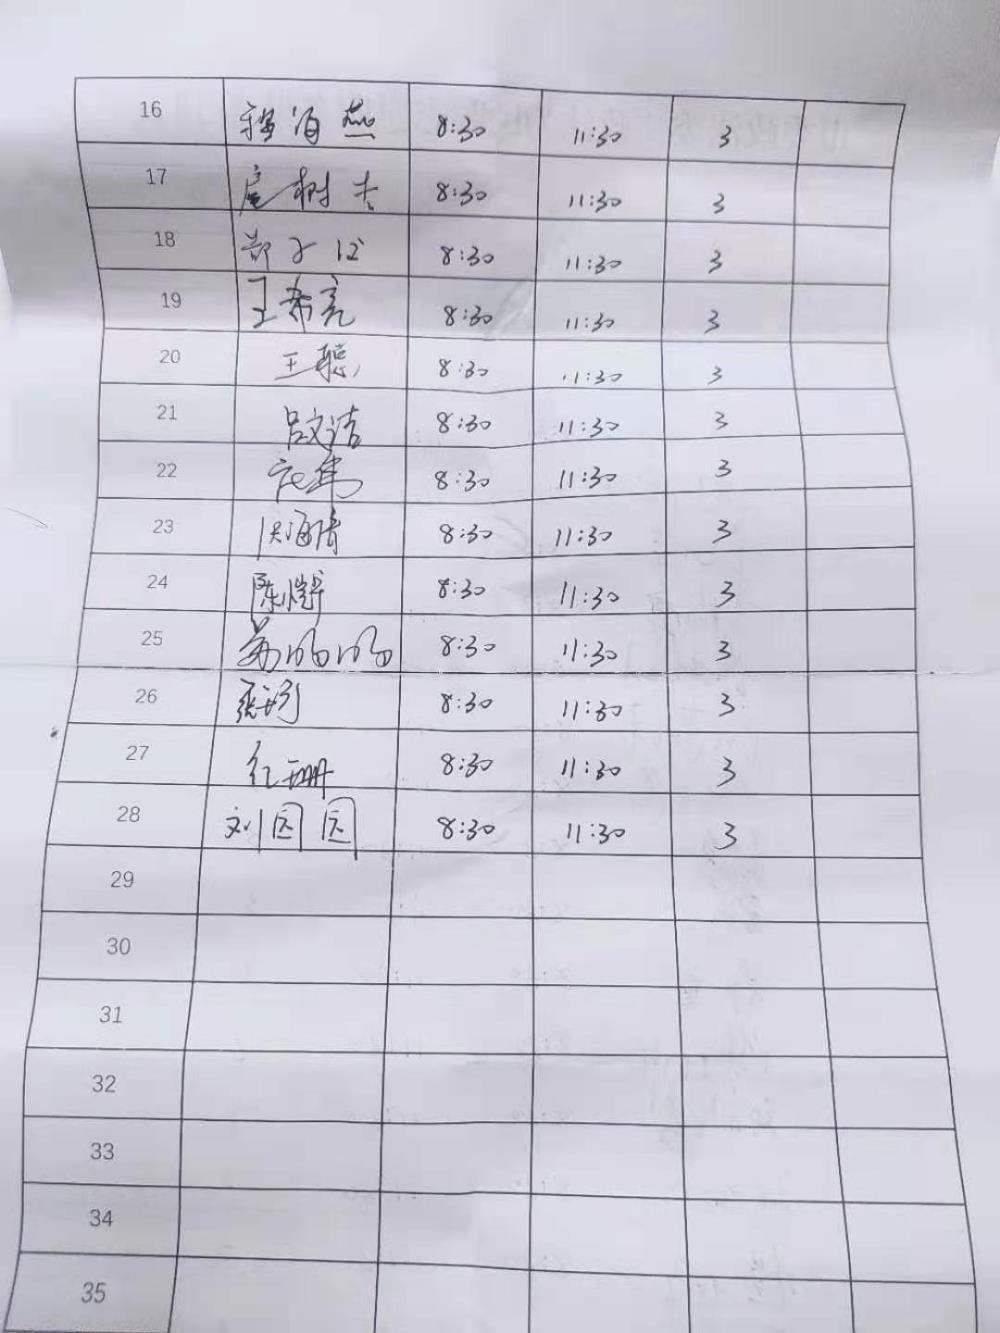 16 海燕 8:30 11:30 3
17 树 8:30 11:30 3
18 8:30 11:30 3
19 王希亮 8:30 11:30 3
20 王聪 8:30 11:30 3
21 吕文洁 8:30 11:30 3
22 8:30 11:30 3
23 8:30 11:30 3
24 陈 8:30 11:30 3
25 明明 8:30 11:30 3
26 张 8:30 11:30 3
27 红珊 8:30 11:30 3
28 刘园园 8:30 11:30 3
29
30
31
32
33
34
35